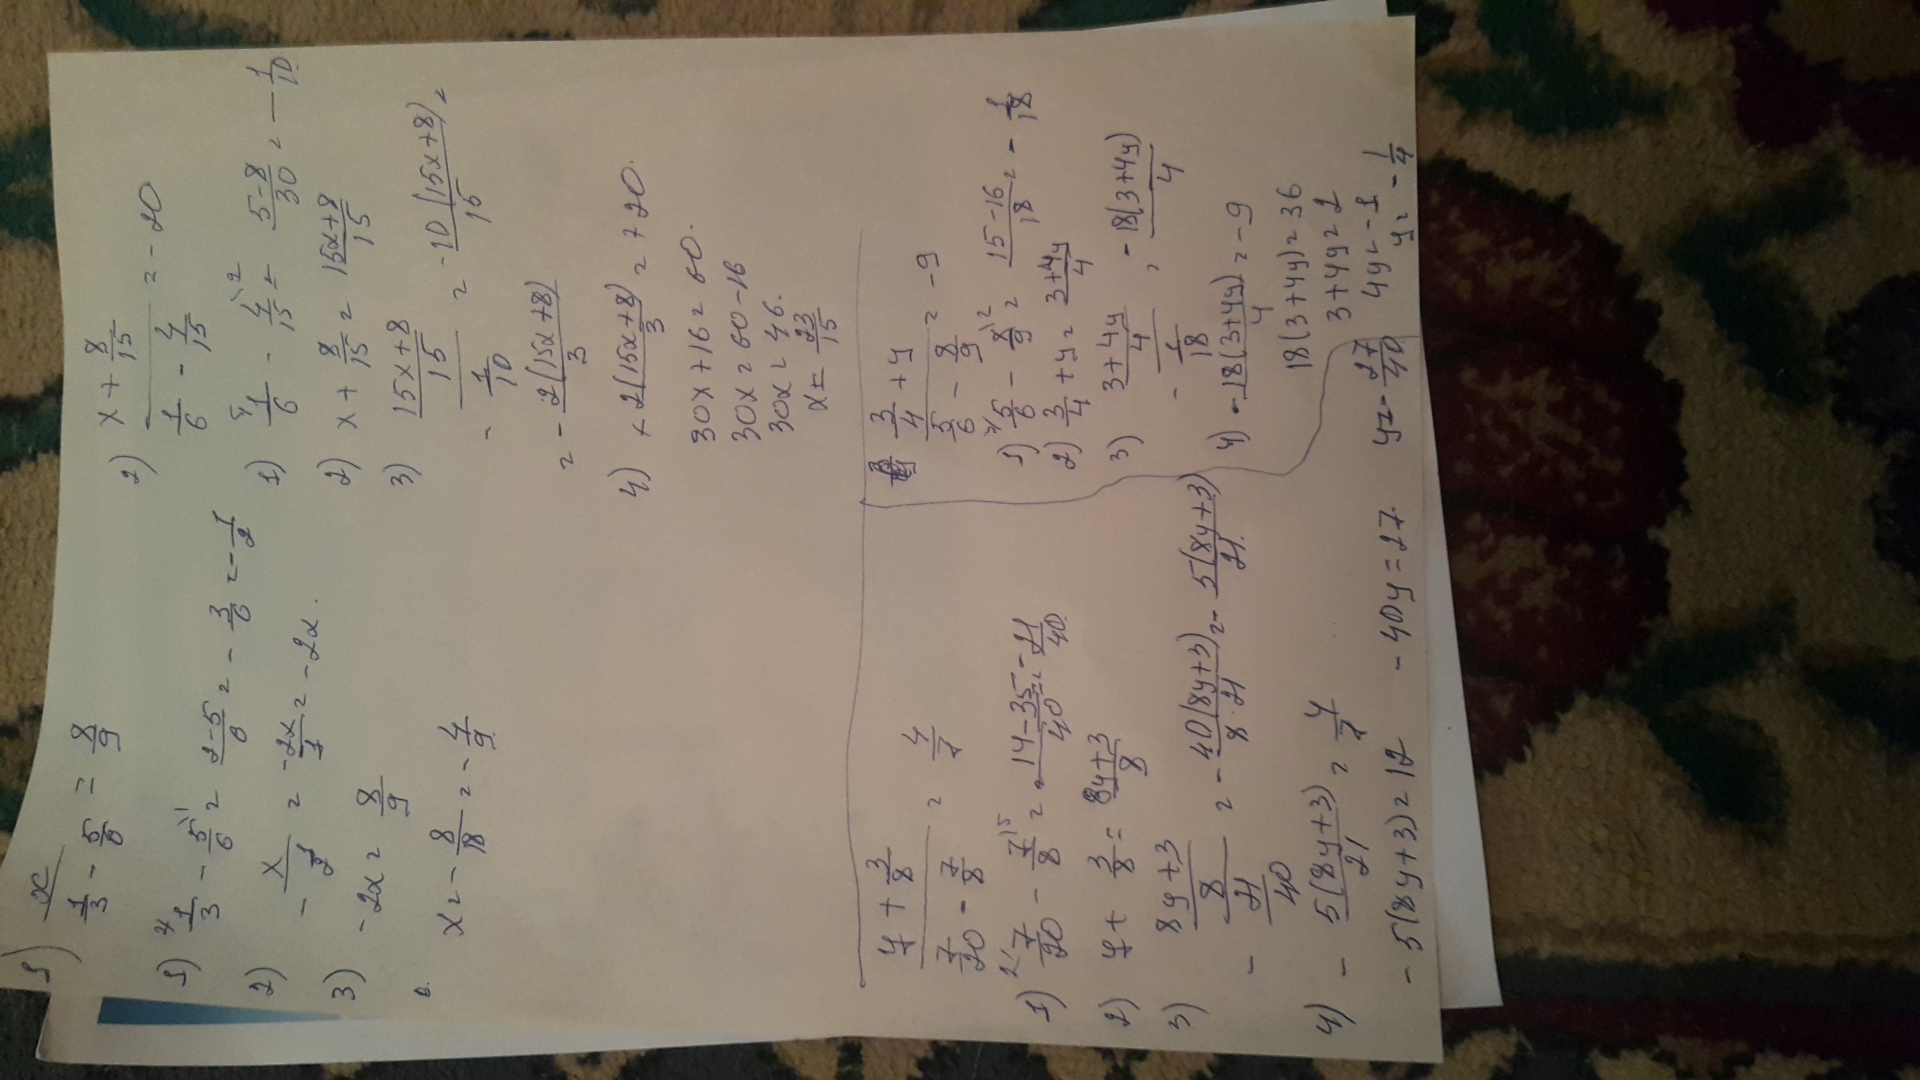 1) x / (1/3 - 5/6) = 8/9
1) 1/3 - 5/6 = (2-5)/6 = - 3/6 = - 1/2
2) - x / (1/2) = - 2x/1 = - 2x.
3) -2x = 8/9
x = - 8/18 = - 4/9.
2) (x + 8/15) / (1/6 - 4/15) = - 20
1) 1/6 - 4/15 = (5-8)/30 = - 1/10.
2) x + 8/15 = (15x+8)/15
3) ((15x+8)/15) / (- 1/10) = - 10(15x+8)/15 =
= - 2(15x+8)/3
4) + 2(15x+8)/3 = + 20.
30x + 16 = 60.
30x = 60-16
30x = 46.
x = 23/15
(y + 3/8) / (7/20 - 7/8) = 4/7
1) 7/20 - 7/8 = (14-35)/40 = - 21/40.
2) y + 3/8 = (8y+3)/8
3) - ((8y+3)/8) / (21/40) = - 40(8y+3)/(8·21) = - 5(8y+3)/21.
4) - 5(8y+3)/21 = 4/7
- 5(8y+3) = 12
- 40y = 27.
y = - 27/40
(3/4 + y) / (5/6 - 8/9) = - 9
1) 5/6 - 8/9 = (15-16)/18 = - 1/18
2) 3/4 + y = (3+4y)/4
3) ((3+4y)/4) / (- 1/18) = - 18(3+4y)/4
4) - 18(3+4y)/4 = - 9
18(3+4y) = 36
3+4y = 2
4y = - 1
y = - 1/4